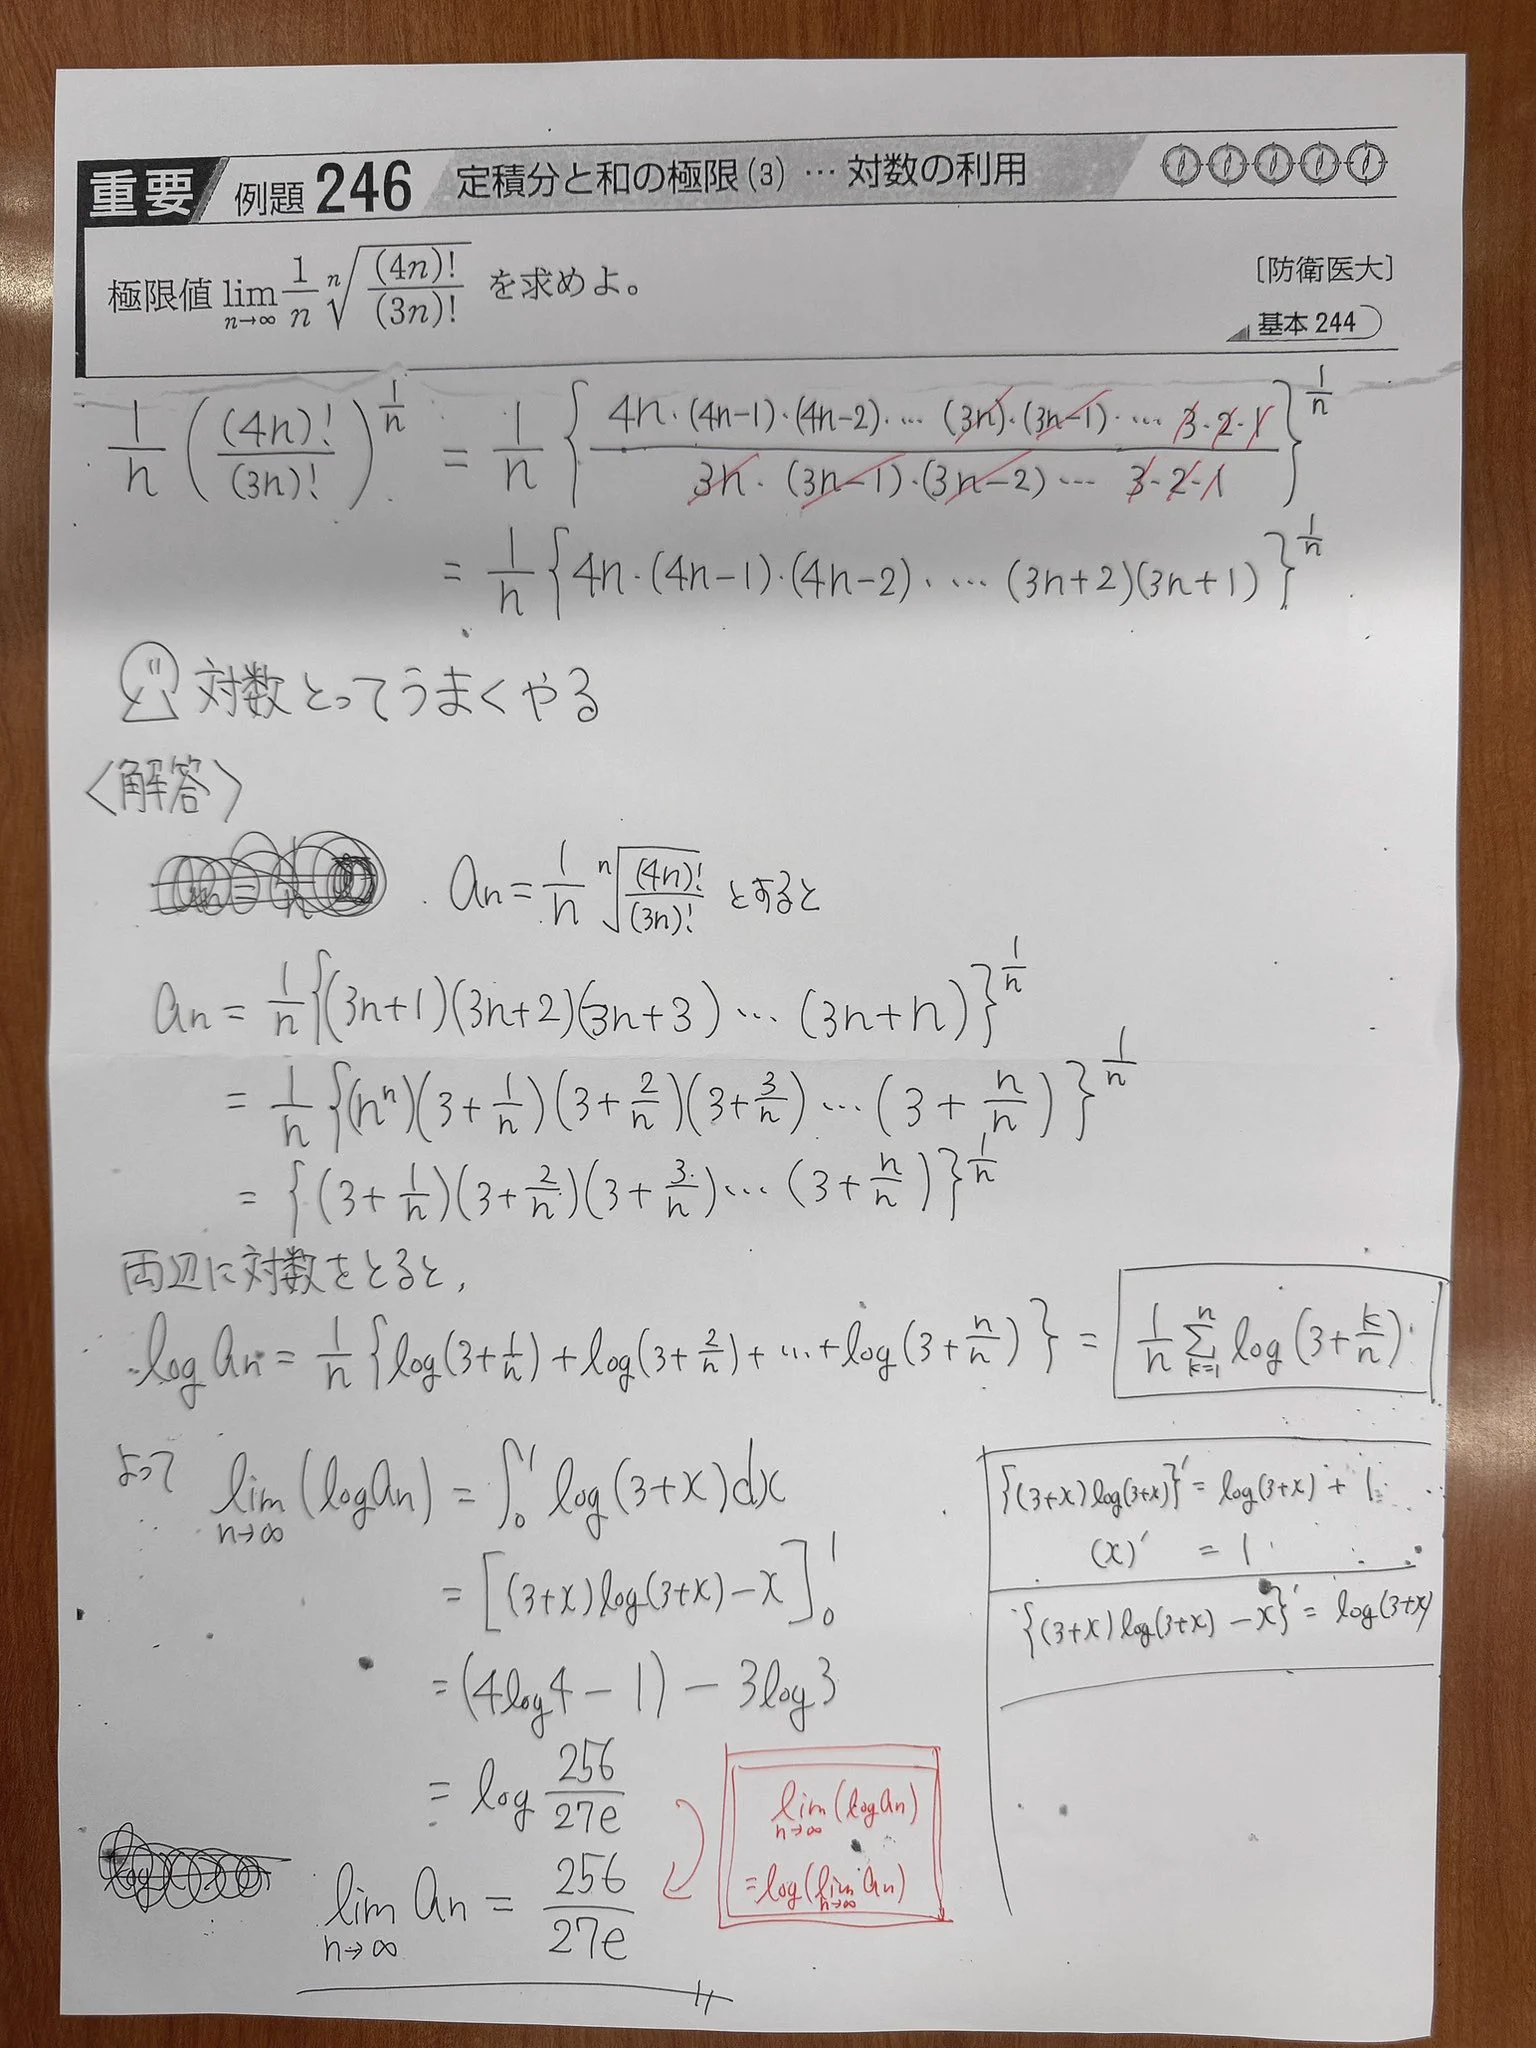 重要 例題 246 定積分と和の極限(3) … 対数の利用
極限値 lim_{n→∞} 1/n ⁿ√((4n)!/(3n)!) を求めよ。
〔防衛医大〕
基本 244
1/n ((4n)!/(3n)!)^{1/n} = 1/n {4n・(4n-1)・(4n-2)・…(3n)・(3n-1)・…3・2・1 / 3n・(3n-1)・(3n-2)…3・2・1}^{1/n}
= 1/n {4n・(4n-1)・(4n-2)・…(3n+2)(3n+1)}^{1/n}
対数とってうまくやる
〈解答〉
an = 1/n ⁿ√((4n)!/(3n)!) とすると
an = 1/n {(3n+1)(3n+2)(3n+3)…(3n+n)}^{1/n}
= 1/n {(nⁿ)(3+1/n)(3+2/n)(3+3/n)…(3+n/n)}^{1/n}
= {(3+1/n)(3+2/n)(3+3/n)…(3+n/n)}^{1/n}
両辺に対数をとると,
log an = 1/n {log(3+1/n)+log(3+2/n)+…+log(3+n/n)} = 1/n Σ_{k=1}^{n} log(3+k/n)
よって lim_{n→∞}(log an) = ∫₀¹ log(3+x)dx
= [(3+x)log(3+x)-x]₀¹
= (4log4-1)-3log3
= log 256/27e
lim_{n→∞} an = 256/27e
{(3+x)log(3+x)}' = log(3+x)+1
(x)' = 1
{(3+x)log(3+x)-x}' = log(3+x)
lim_{n→∞}(log an)
=log(lim_{n→∞} an)